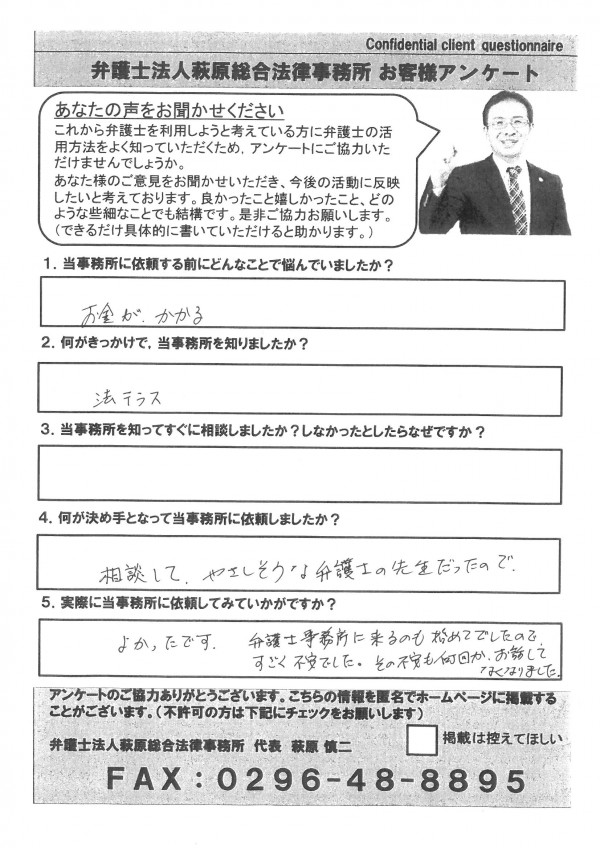 Confidential client questionnaire
弁護士法人萩原総合法律事務所 お客様アンケート
あなたの声をお聞かせください
これから弁護士を利用しようと考えている方に弁護士の活
用方法をよく知っていただくため，アンケートにご協力いた
だけませんでしょうか。
あなた様のご意見をお聞かせいただき、今後の活動に反映
したいと考えております。良かったこと嬉しかったこと、どの
ような些細なことでも結構です。是非ご協力お願いします。
（できるだけ具体的に書いていただけると助かります。）
１．当事務所に依頼する前にどんなことで悩んでいましたか？
お金が、かかる
２．何がきっかけで，当事務所を知りましたか？
法テラス
３．当事務所を知ってすぐに相談しましたか？しなかったとしたらなぜですか？
４．何が決め手となって当事務所に依頼しましたか？
相談して、やさしそうな弁護士の先生だったので、
５．実際に当事務所に依頼してみていかがですか？
よかったです。 弁護士事務所に来るのも初めてでしたので、
すごく不安でした。その不安も何回か、お話して
なくなりました。
アンケートのご協力ありがとうございます。こちらの情報を匿名でホームページに掲載する
ことがございます。（不許可の方は下記にチェックをお願いします）
弁護士法人萩原総合法律事務所 代表 萩原 慎二
掲載は控えてほしい
FAX：0296-48-8895